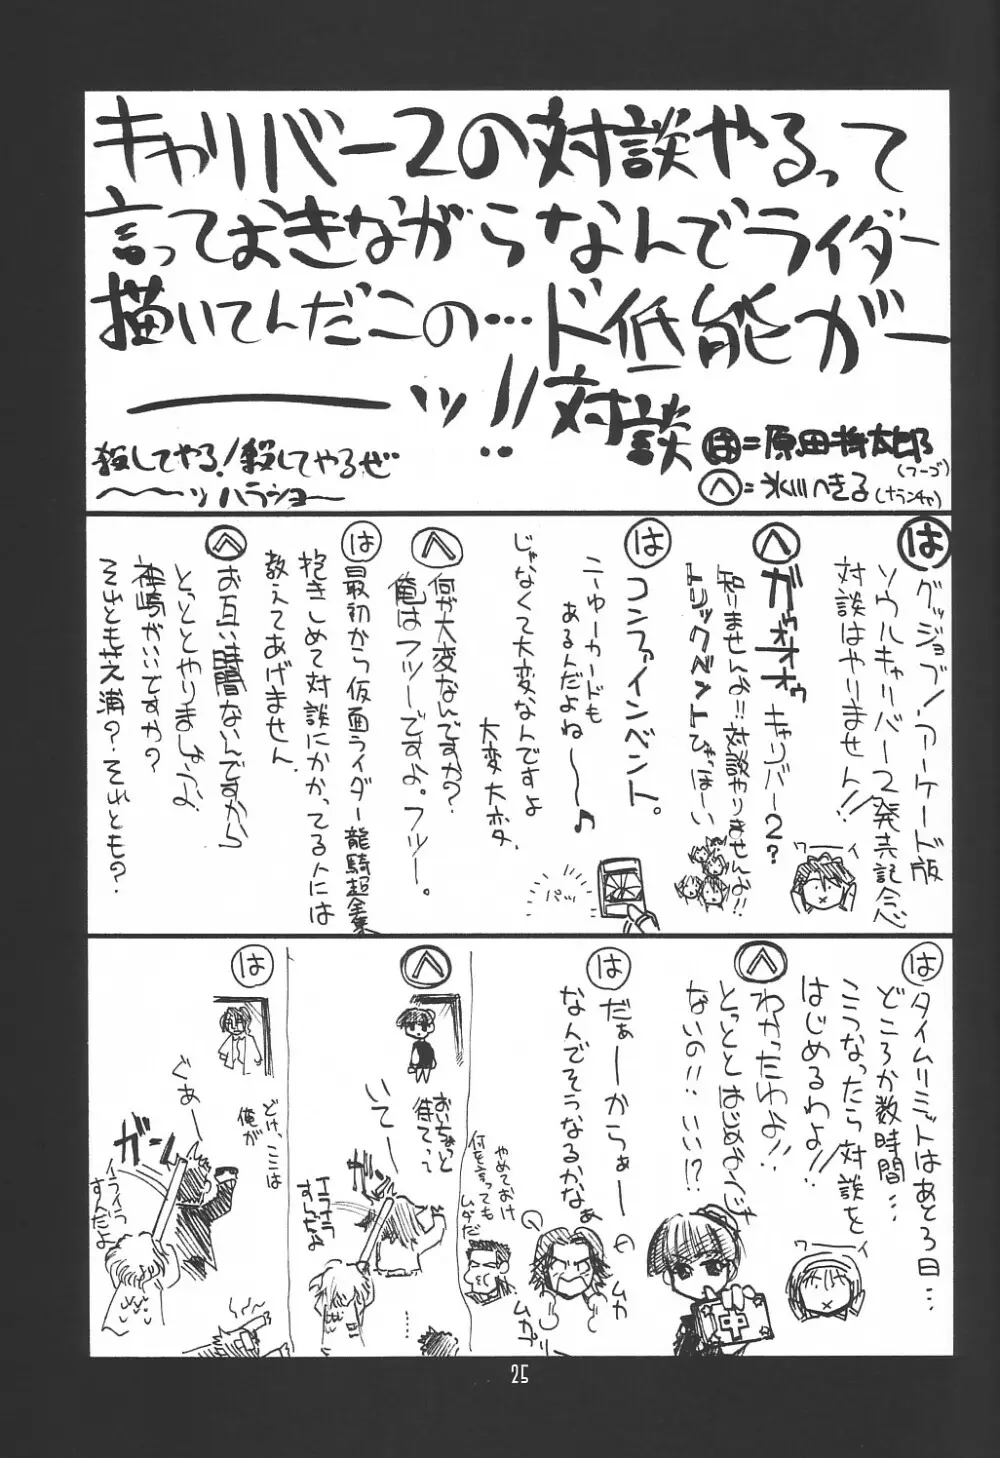 キャリバー2の対談やるって
言っておきながらなんでライダー
描いてんだこの…ド低能がー
ーーーッ!!対談
殺してやる!殺してやるぜ
〜〜〜ッハラショー
は=原田将太郎
(フーゴ)
へ=氷川へきる(ナランチャ)
は
グッジョブ!アーケード版
ソウルキャリバー2発売記念
対談はやりません!!
ワーイ
へ
ガゥオオオゥキャリバー2?
知りませんよ!!対談やりませんよ!!
トリックベントびゃほーい
は
コンファインベント。
ニューカードも
あるんだよね〜〜♪
じゃなくて大変なんですよ
大変大変
パッ
へ
何が大変なんですか?
俺はフツーですよ。フツー。
は
最初から仮面ライダー龍騎超全集
抱きしめて対談にかかってる人には
教えてあげません。
へ
お互い時間ないんですから
とっととやりましょうよ
神崎がいいですか?
それとも芝浦?それとも?
は
タイムリミットはあと3日…
どころか数時間…
こうなったら対談を
はじめるわよ!!
ワーイ
へ
わかったわよ!!
とっととはじめればイイんじゃ
ないの!!いい!?
中
は
だぁーからぁー
なんでそうなるかなぁ
ムカ
ムカッ
やめておけ
何を言っても
ムダだ
へ
おいちょっと
待てって
いてー
ガッ
イライラ
するなよ
……
は
どけ、ここは
俺が
ぐぁー
ガーン
イライラ
すんだよ
25